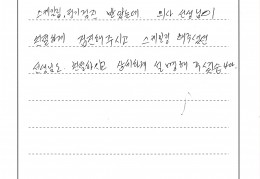 스케일링, 정기검진 받았는데 의사 선생님이
친절하게 검진해주시고 스케일링 해주셨던
선생님도 친절하시고 상세하게 설명해 주셨습니다.